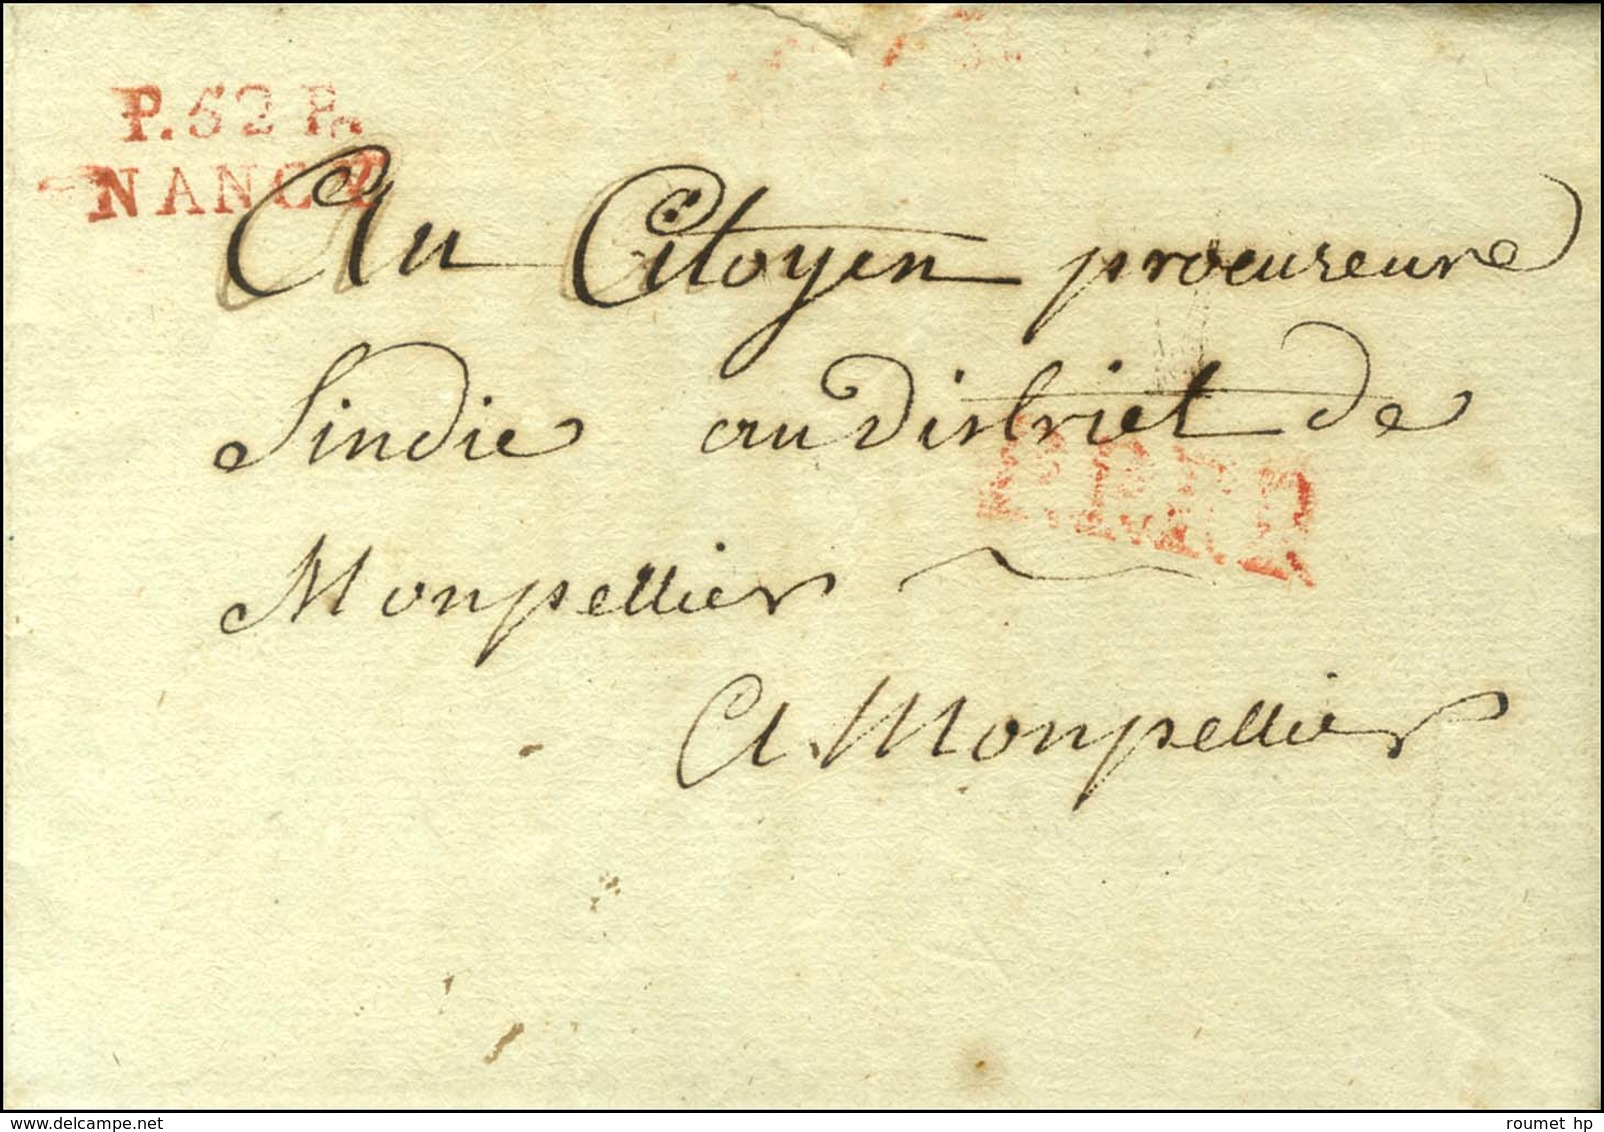 P.52.P.
NANCY
Au Citoyen procureure
Sindic au District de
Monpellier
A Monpellier
www.delcampe.net
roumet hp